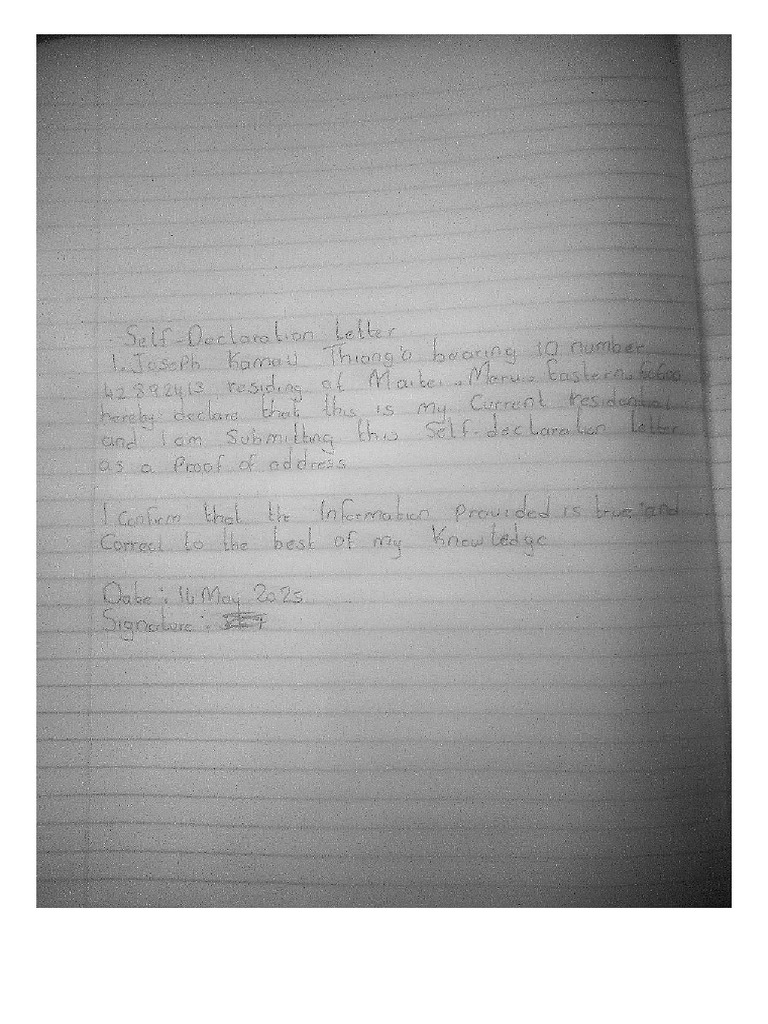 Self-Declaration Letter
I, Joseph Kamau Thiong'o bearing ID number
42892413 residing at Maitei, Meru, Eastern, 60600
hereby declare that this is my Current residential
and I am Submitting this Self-declaration letter
as a Proof of address
I Confirm that the Information Provided is true and
Correct to the best of my Knowledge
Date: 14 May 2025
Signature: